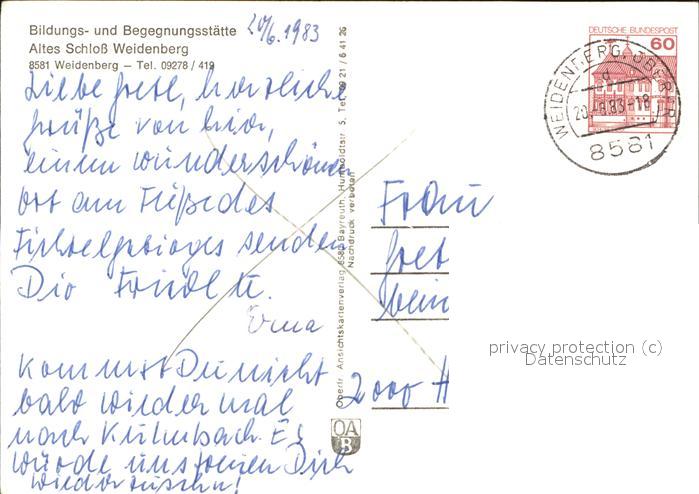 Bildungs- und Begegnungsstätte
Altes Schloß Weidenberg
8581 Weidenberg – Tel. 09278 / 419
20/6. 1983
Liebe Gret, herzliche
Grüße von hier,
einem wunderschönen
Ort am Fuße des
Fichtelgebirges senden
Dir Friedl u.
Erna
Kommst Du nicht
bald wieder mal
nach Kulmbach. Es
würde uns freuen Dich
wiederzusehen!
Oberfr. Ansichtskartenverlag, 8580 Bayreuth, Humboldtstr. 5, Tel. 09 21 / 6 41 26
Nachdruck verboten
OA
B
DEUTSCHE BUNDESPOST
60
WEIDENBERG, OBERFR
20.-6.83-18
8581
Frau
Gret
2000 H
privacy protection (c)
Datenschutz